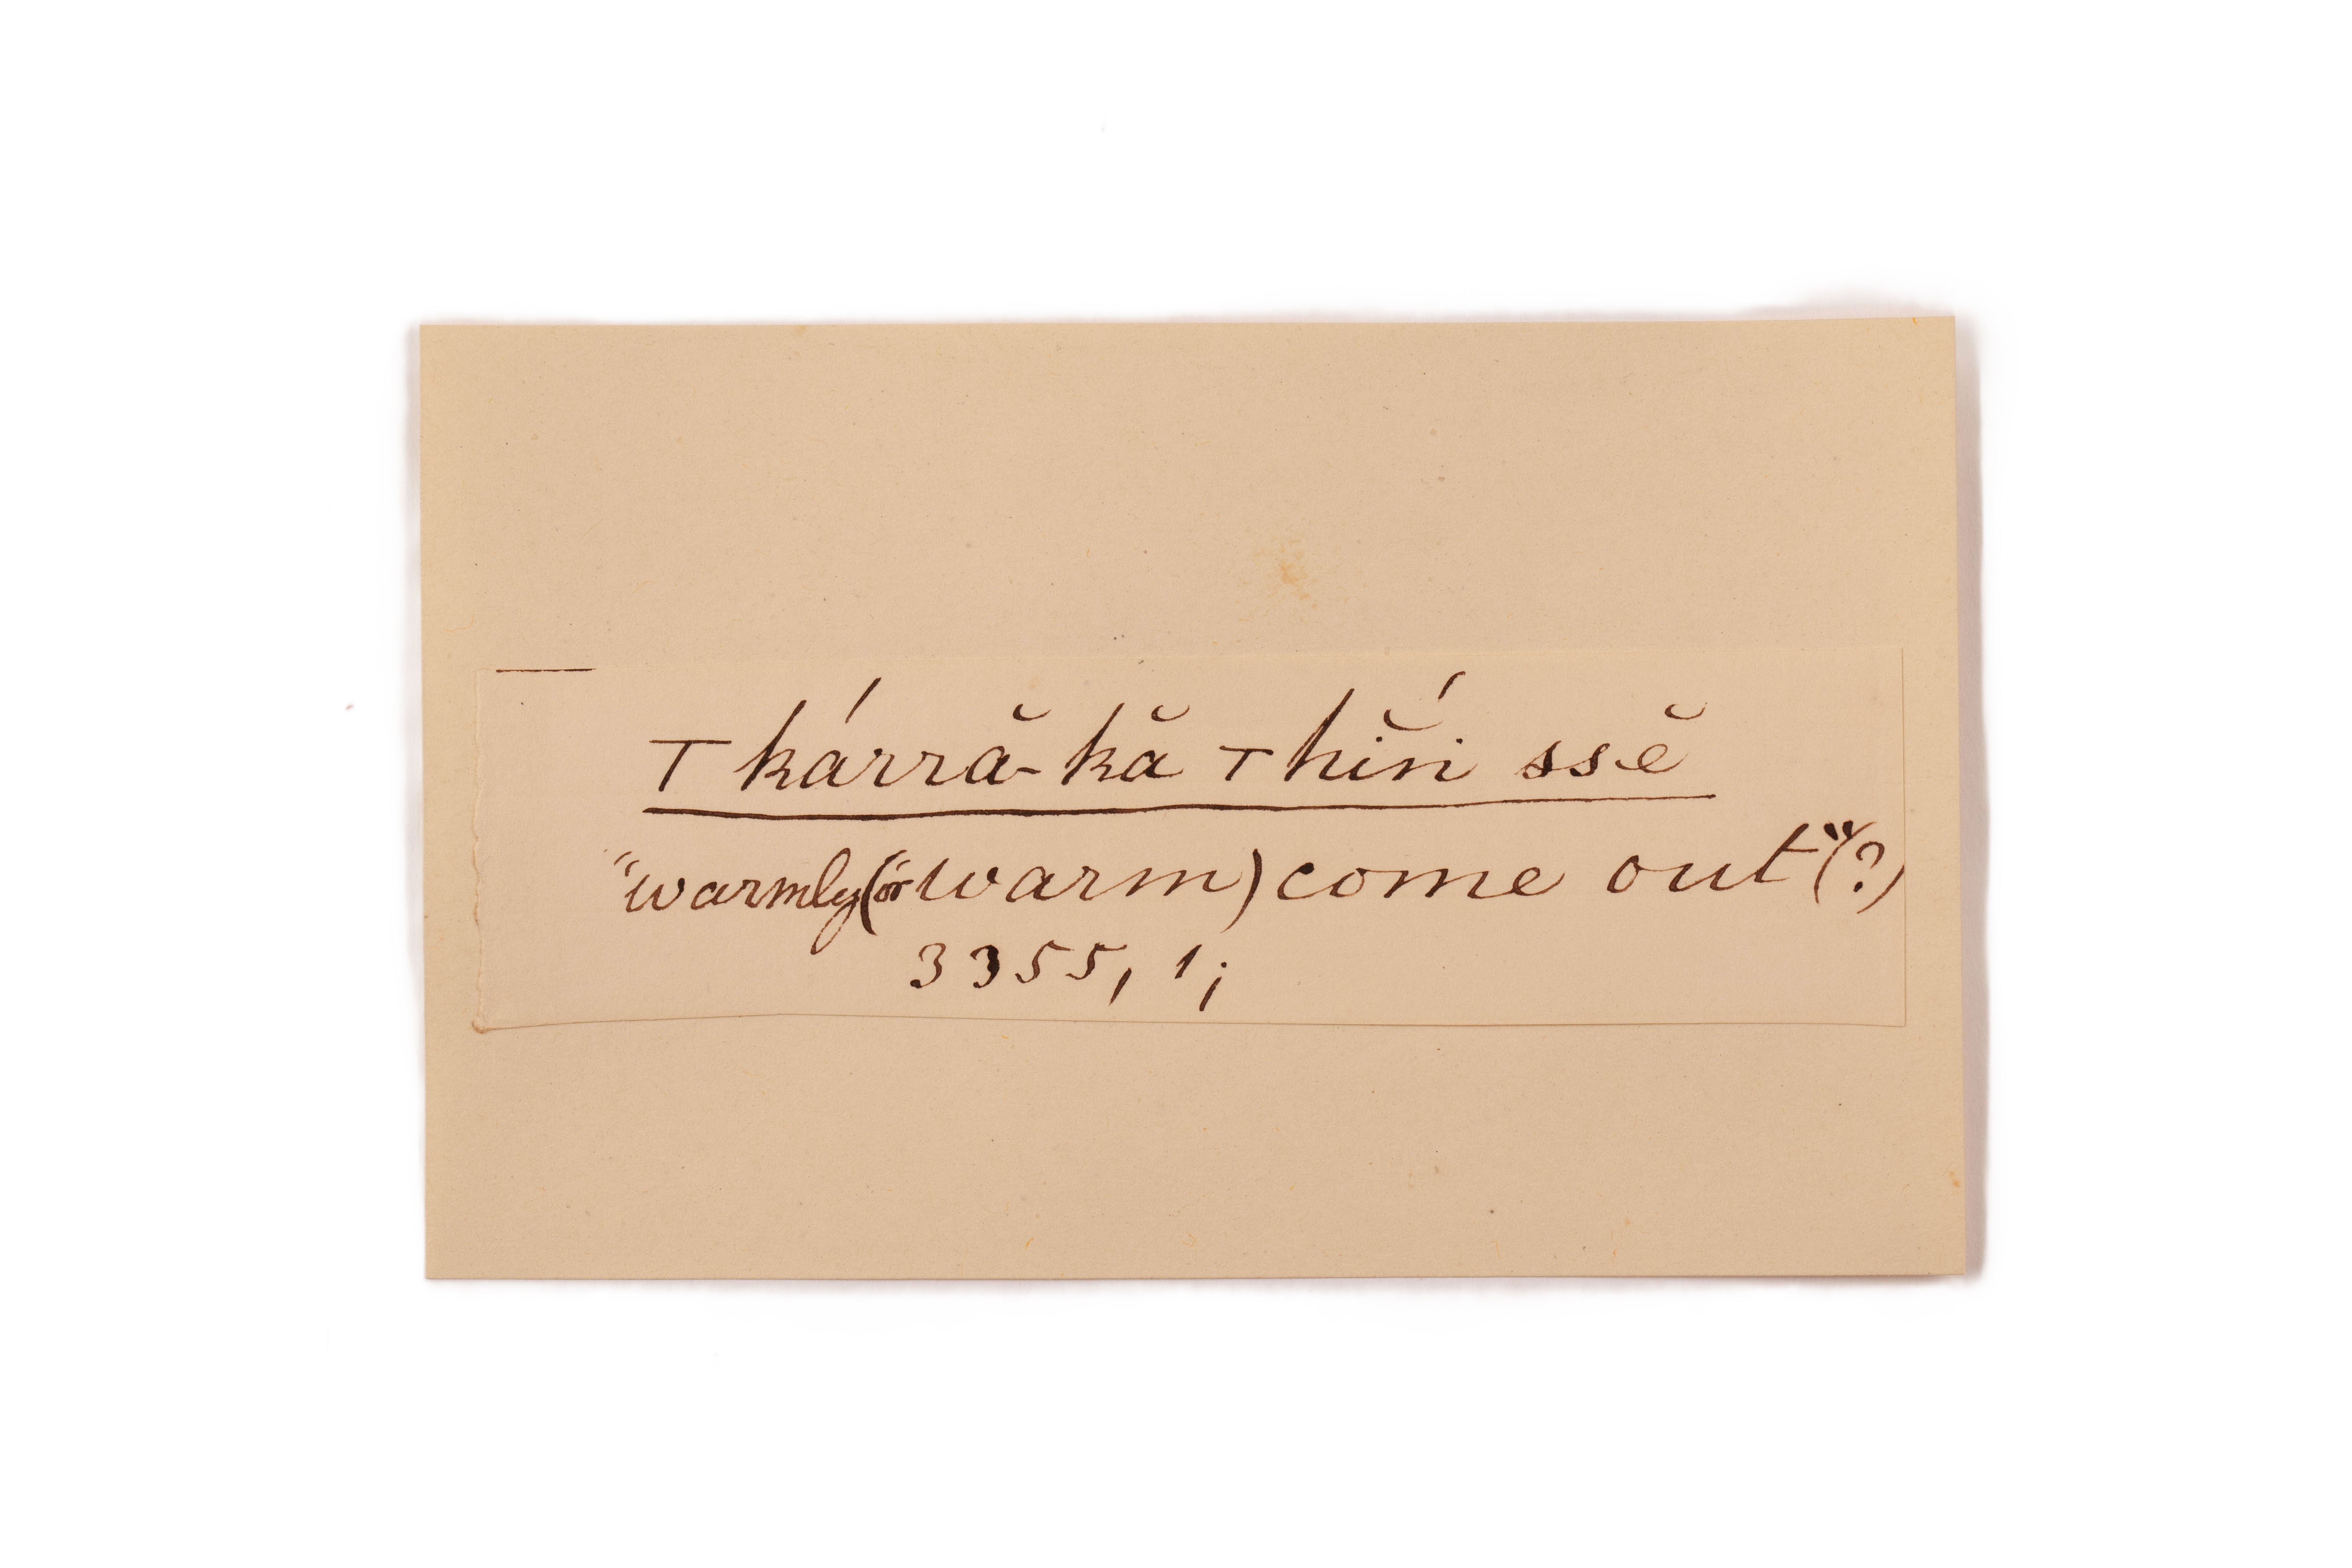 ⊤kárră-kă ⊤hĭńi ssĕ
"warmly (or warm) come out" (?)
3355, 1;